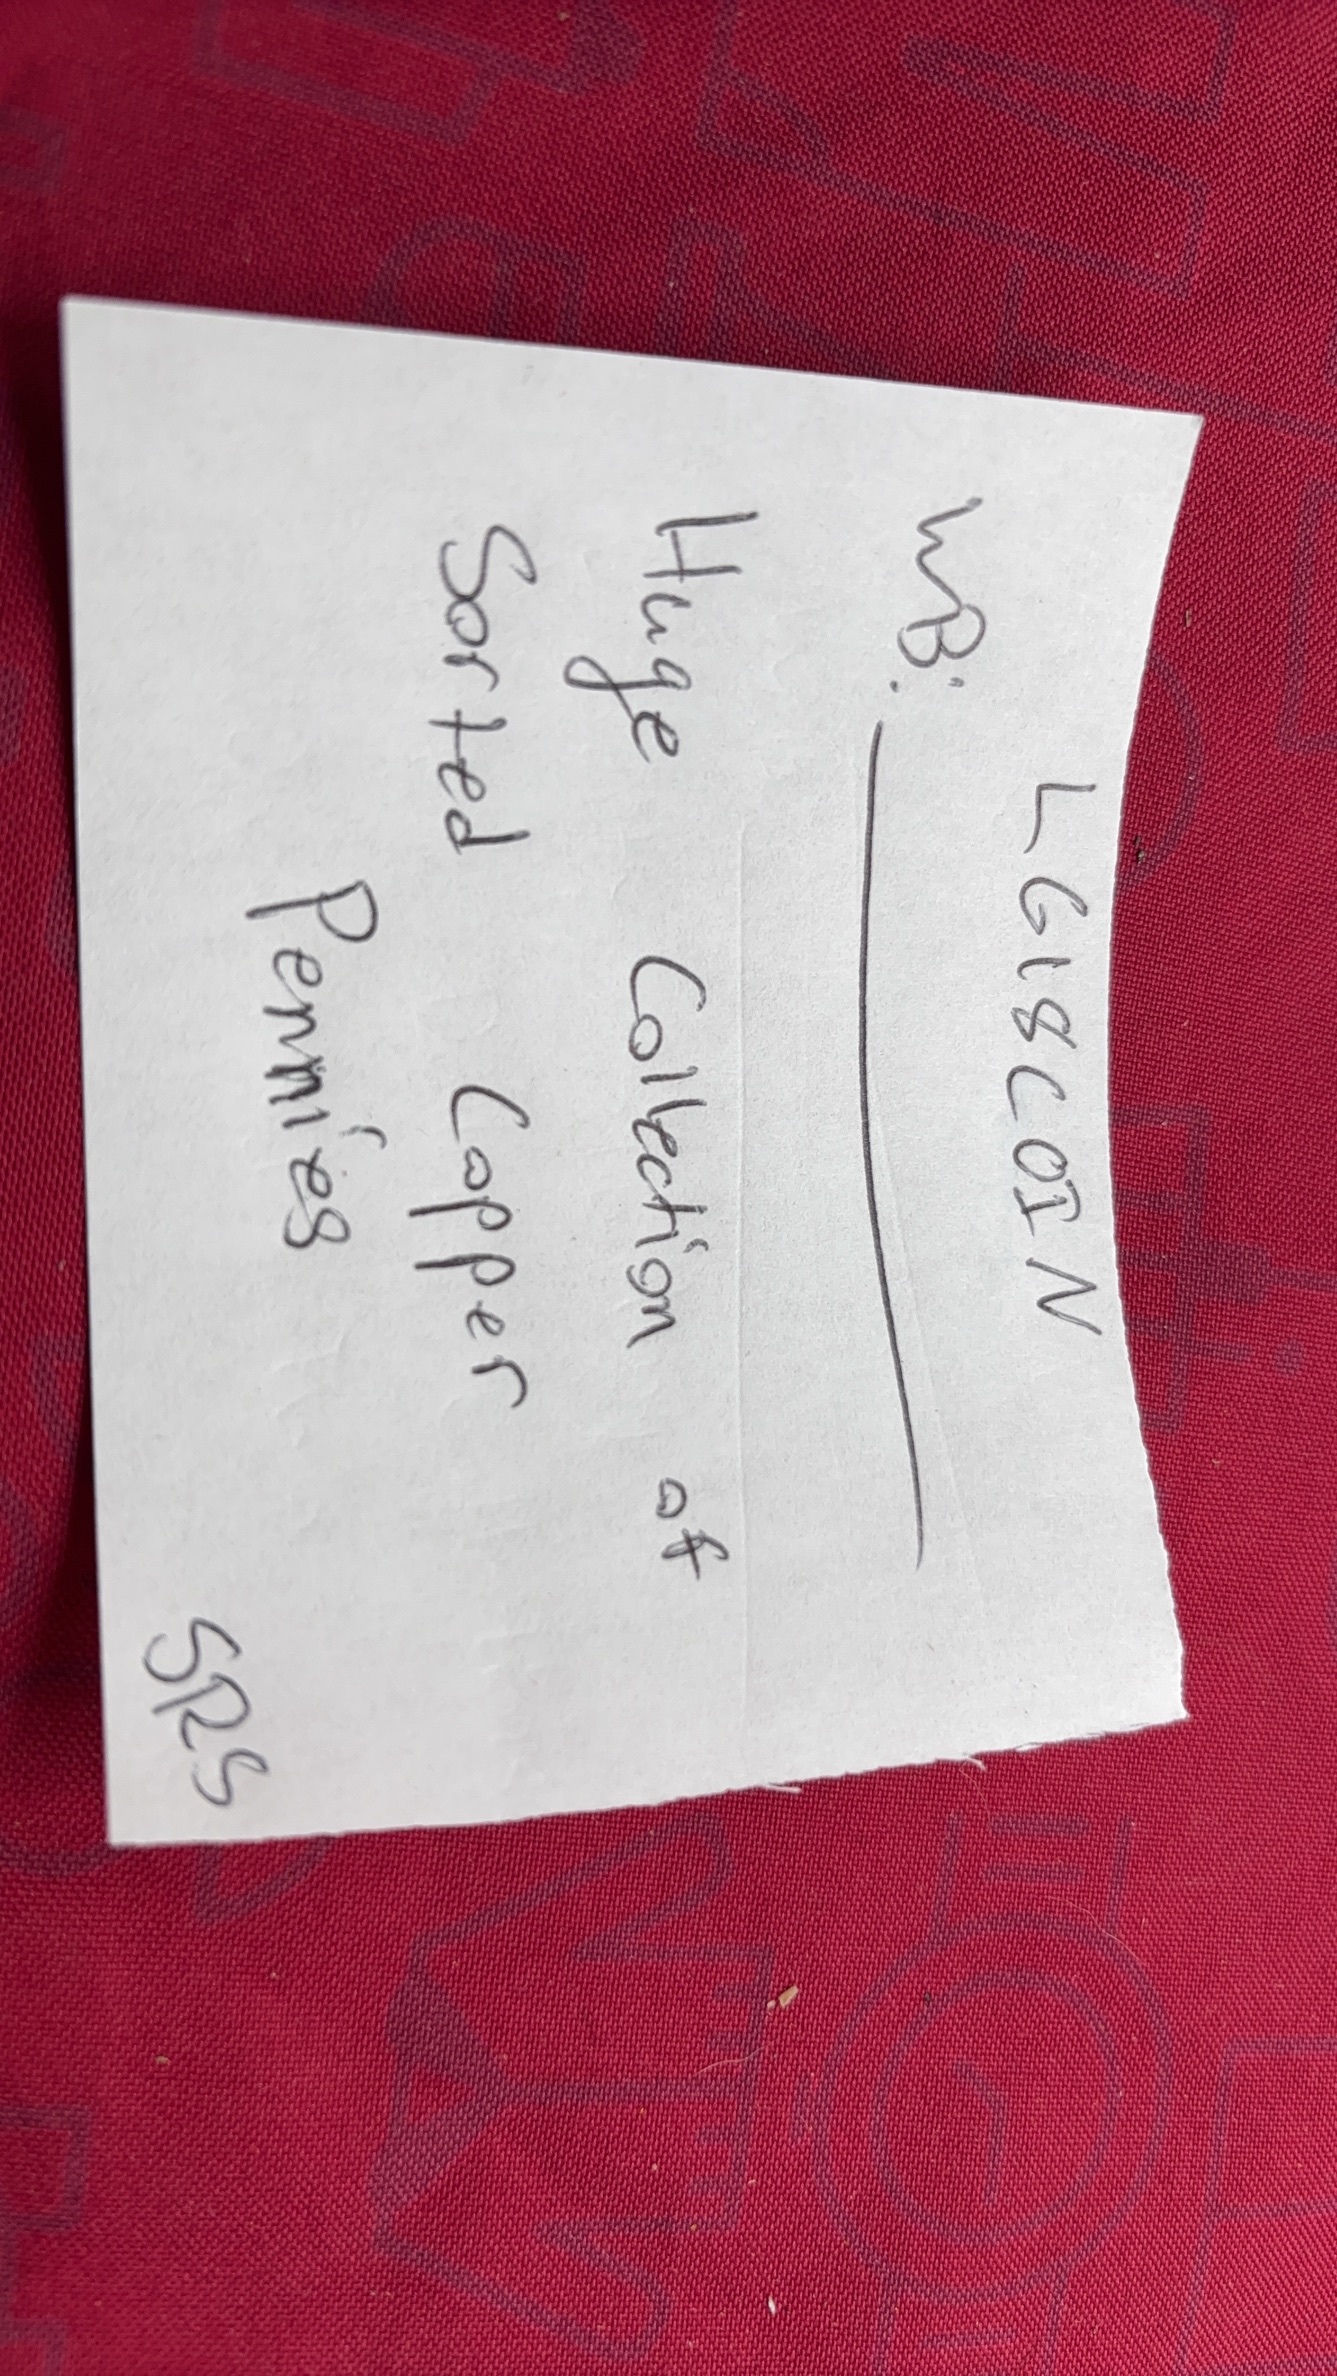 LG18COIN
WB:
Huge Collection of
Sorted Copper
Pennies
SRS